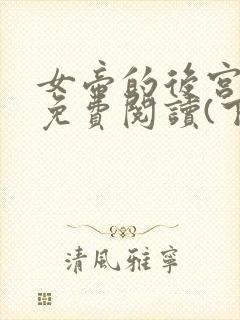 女帝的後宮
免費閱讀(下
清風雅寧